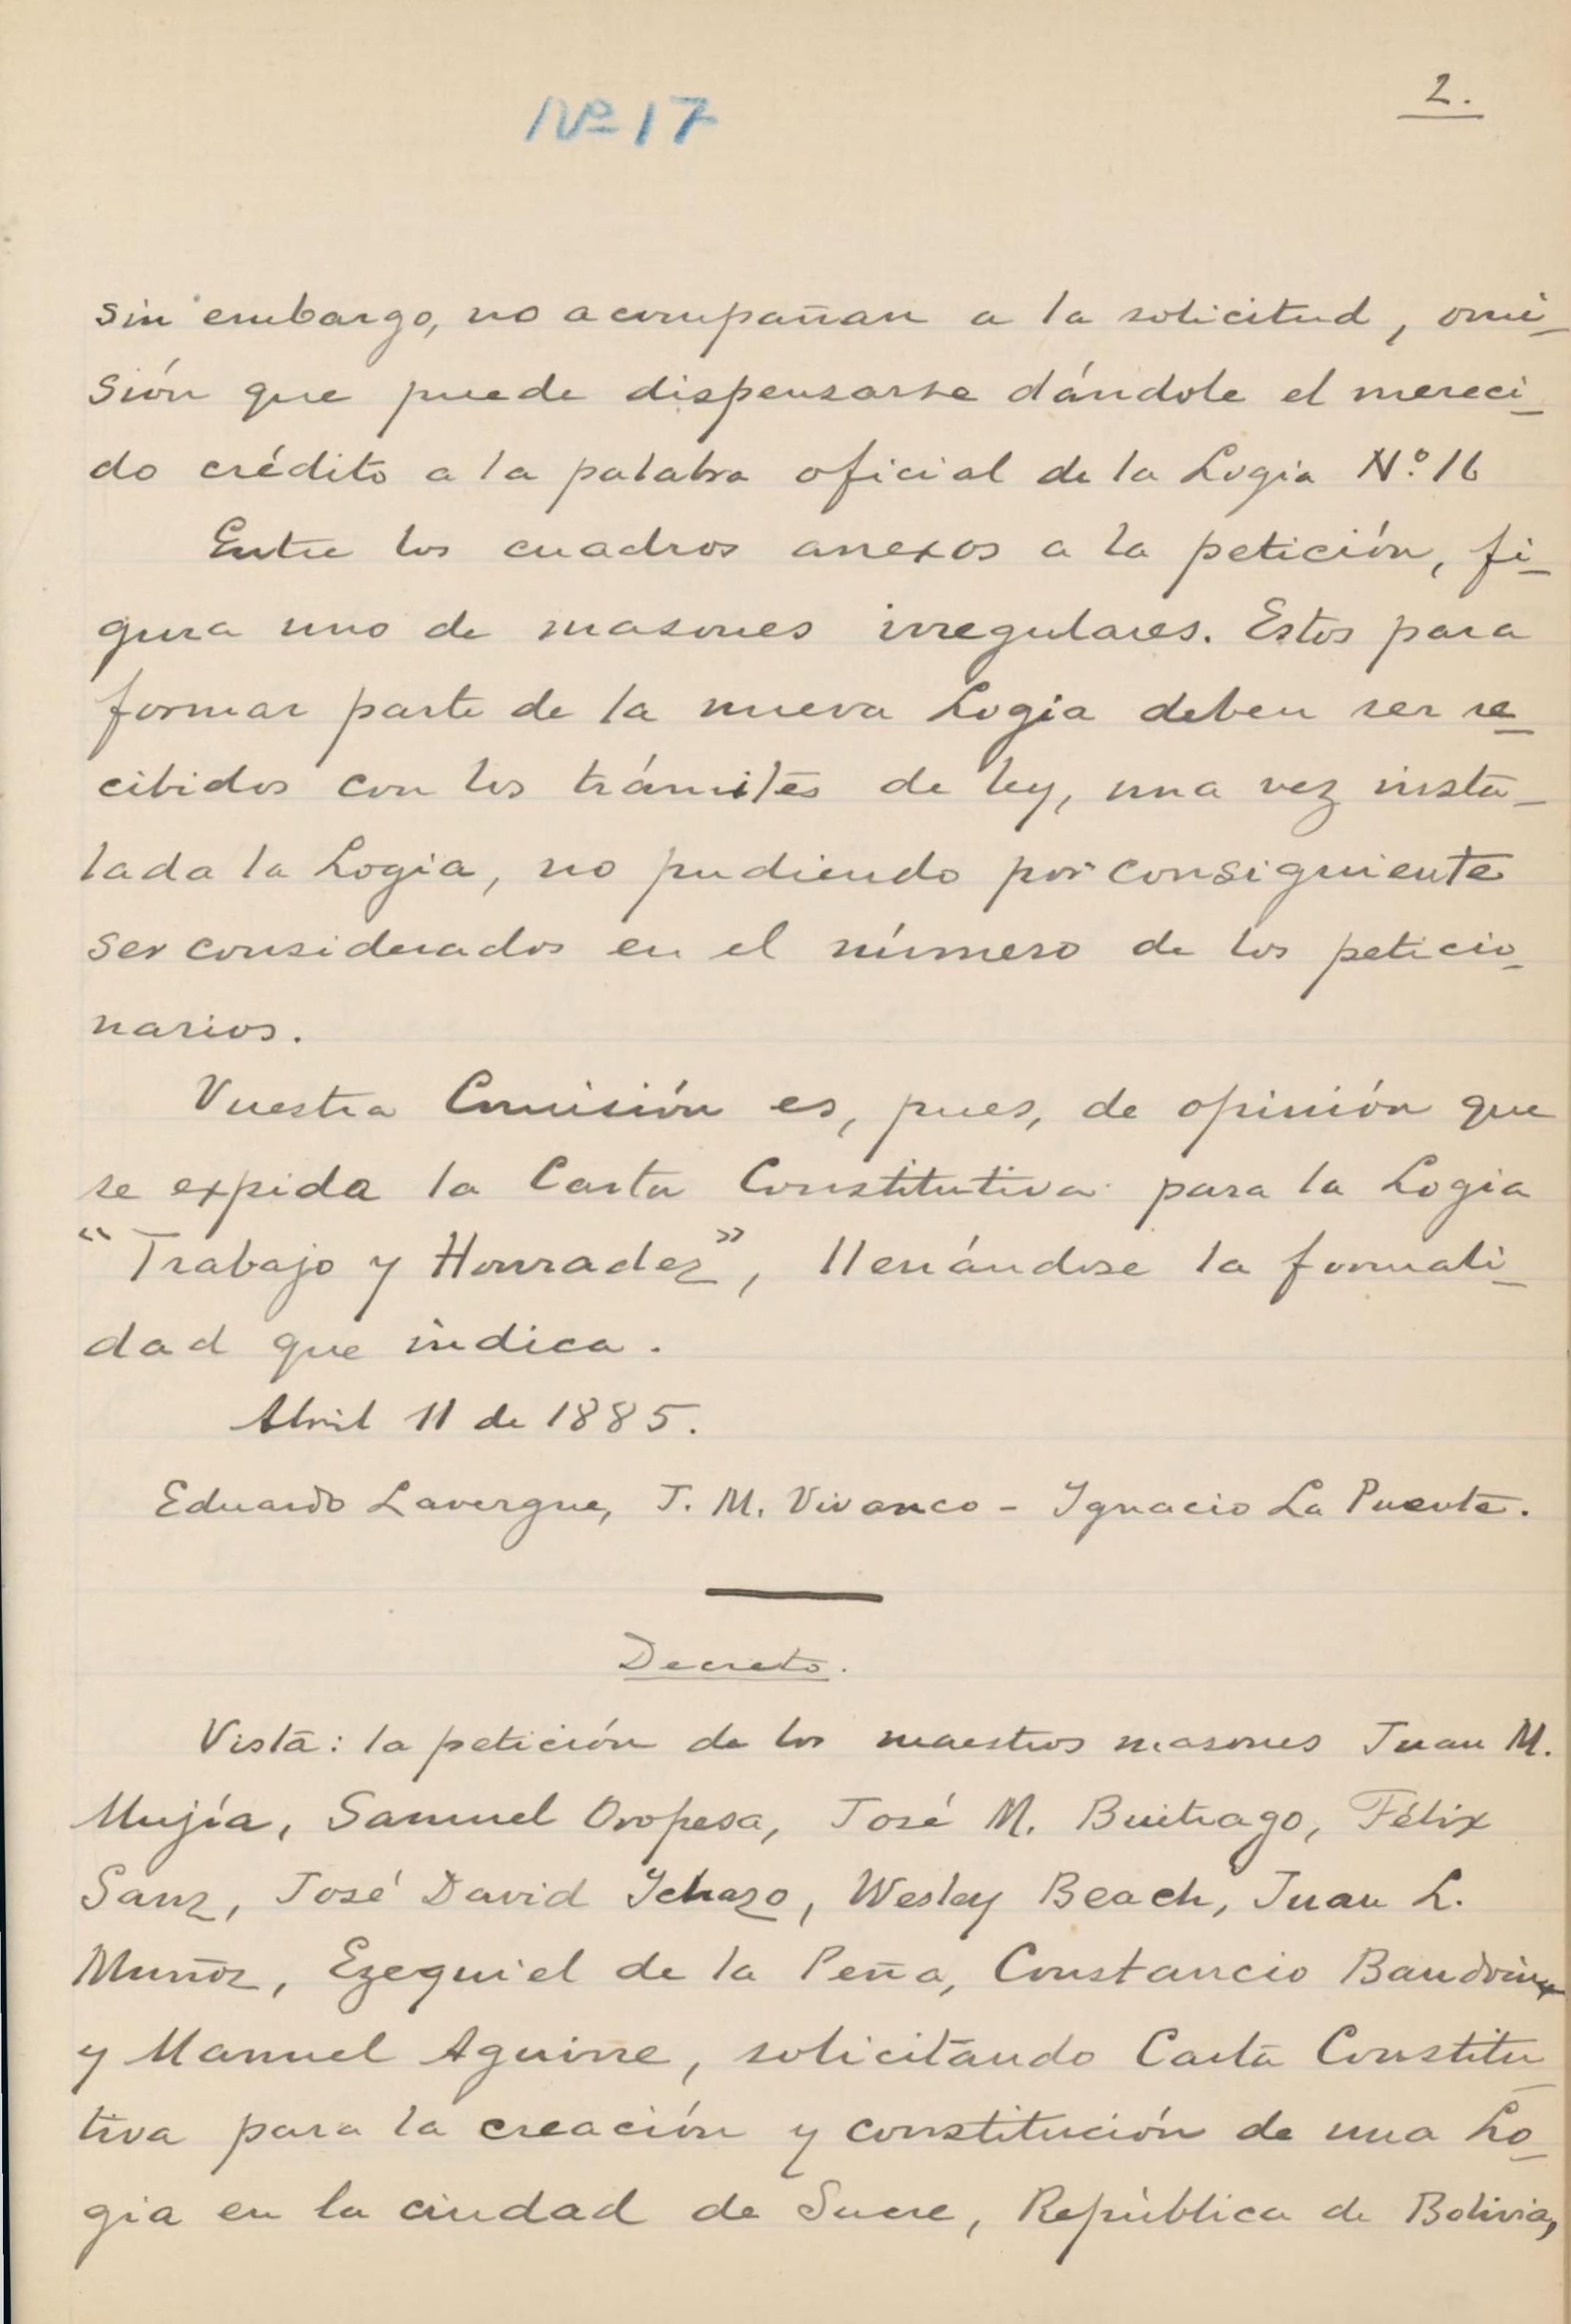 2.
Nº 17
sin embargo, no acompañan a la solicitud, omi-
sión que puede dispensarse dándole el mereci-
do crédito a la palabra oficial de la Logia N.º 16
Entre los cuadros anexos a la petición, fi-
gura uno de masones irregulares. Estos para
formar parte de la nueva Logia deben ser re-
cibidos con los trámites de ley, una vez insta-
lada la Logia, no pudiendo por consiguiente
ser considerados en el número de los peticio-
narios.
Vuestra Comisión es, pues, de opinión que
se expida la Carta Constitutiva para la Logia
“Trabajo y Honradez”, llenándose la formali-
dad que indica.
Abril 11 de 1885.
Eduardo Lavergne, J. M. Vivanco - Ignacio La Puente.
Decreto.
Vista: la petición de los maestros masones Juan M.
Mujía, Samuel Oropesa, José M. Buitrago, Félix
Sanz, José David Ichazo, Wesley Beach, Juan L.
Muñoz, Ezequiel de la Peña, Constancio Baudoinx
y Manuel Aguirre, solicitando Carta Constitu-
tiva para la creación y constitución de una Lo-
gia en la ciudad de Sucre, República de Bolivia,